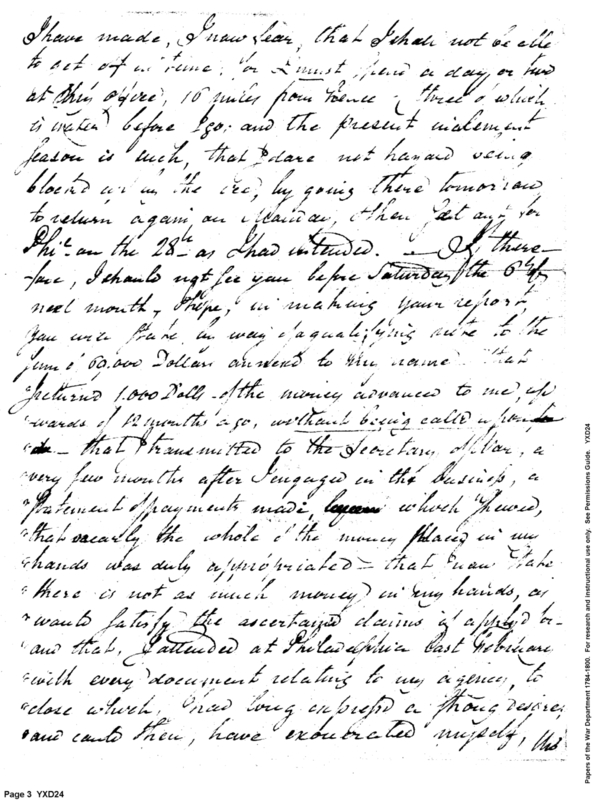 I have made, I now fear, that I shall not be able
to get off in time; for I must spend a day or two
at this office, 16 miles from hence
before I go; and the present inclement
season is such, that I dare not hazard being
blocked in the ice, by going there tomorrow
to return again on Monday, & then for
Phil. on the 28th as I had intended. — If there-
-fore, I should not see you before Saturday the 6th of
next month, I hope, in making your report,
you will state, by way of qualifying note to the
sum of 60.000 Dollars annexed to my name that
"I returned 1.000 Dolls of the money advanced to me, up
"wards of 12 months ago, without being called upon
"— that I transmitted to the Secretary of War, a
"very few months after I engaged in the business, a
"Statement of payments made, which shewed,
"that nearly the whole of the money placed in my
"hands was duly appropriated — that I now state
"there is not as much money in my hands, as
"would satisfy the ascertained claims if applyd for —
"and that, I attended at Philadelphia last February
"with every document relating to my agency, to
"close which, I had long expressd a strong desire,
"and could then, have exonerated myself,
Papers of the War Department 1784-1800. For research and instructional use only. See Permissions Guide. YXD24
Page 3 YXD24